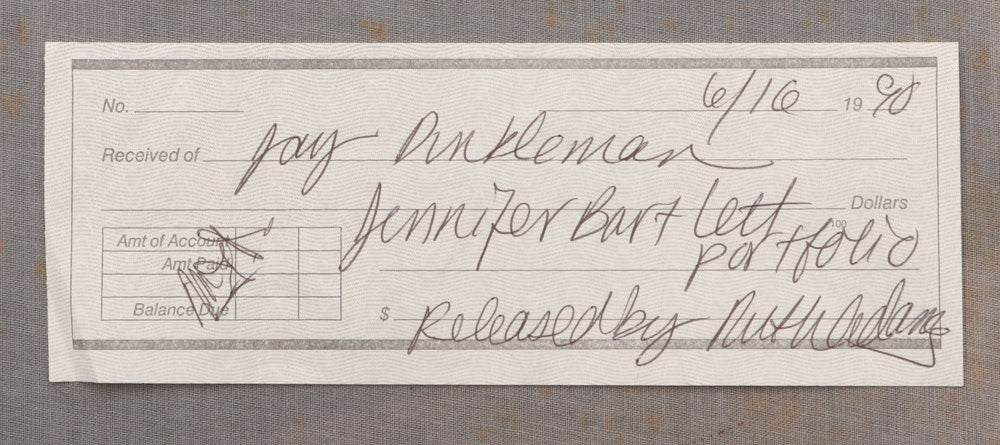 No. 6/16 19 98
Received of Jay Dinkleman
Jennifer Bartlett Dollars
100
portfolio
Amt of Account
Amt Paid
Balance Due
$ Released by Ruth Adams